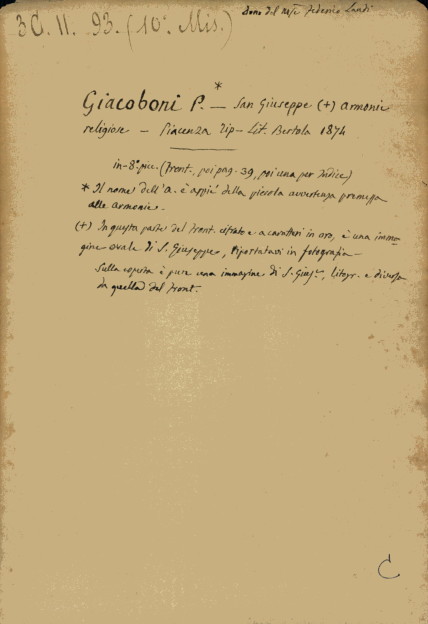 3C. II. 93. (10ª Mis.)
Dono del Mse Federico Landi
*
Giacoboni P. — San Giuseppe (+) armonie
religiose — Piacenza Tip-Lit. Bertola 1874
in-8° picc. (Front., poi pag. 39, poi una per Indice)
* Il nome dell'A. è appiè della piccola avvertenza premessa
alle armonie.
(+) In questa parte del Front. citrato e a caratteri in oro, è una imma-
gine ovale di S. Giuseppe, riportatavi in fotografia —
Sulla coperta è pure una immagine di S. Gius.e, litogr. e diversa
da quella del Front.
C